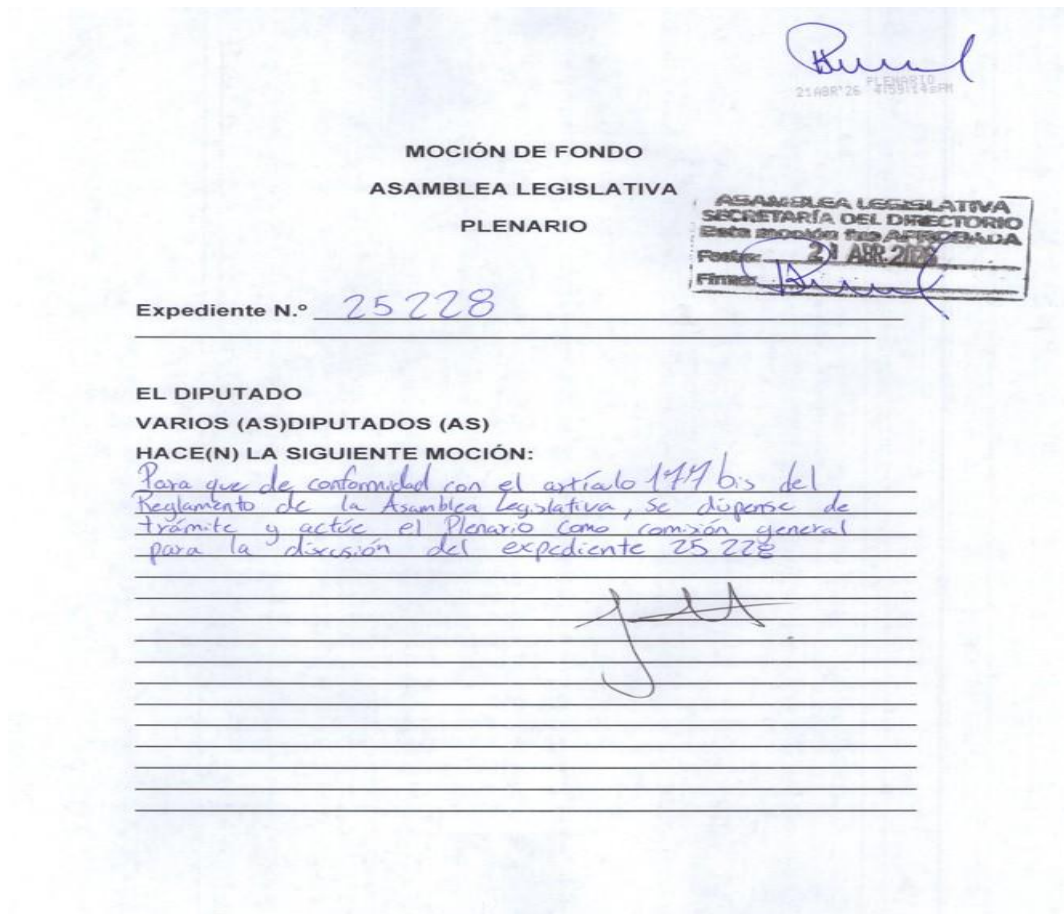 PLENARIO
21ABR'26 4:59:14PM
MOCIÓN DE FONDO
ASAMBLEA LEGISLATIVA
PLENARIO
ASAMBLEA LEGISLATIVA
SECRETARÍA DEL DIRECTORIO
Esta moción fue APROBADA
Fecha: 21 ABR. 2026
Firma:
Expediente N.º 25228
EL DIPUTADO
VARIOS (AS)DIPUTADOS (AS)
HACE(N) LA SIGUIENTE MOCIÓN:
Para que de conformidad con el artículo 177 bis del
Reglamento de la Asamblea Legislativa, se dispense de
trámite y actúe el Plenario como comisión general
para la discusión del expediente 25 228